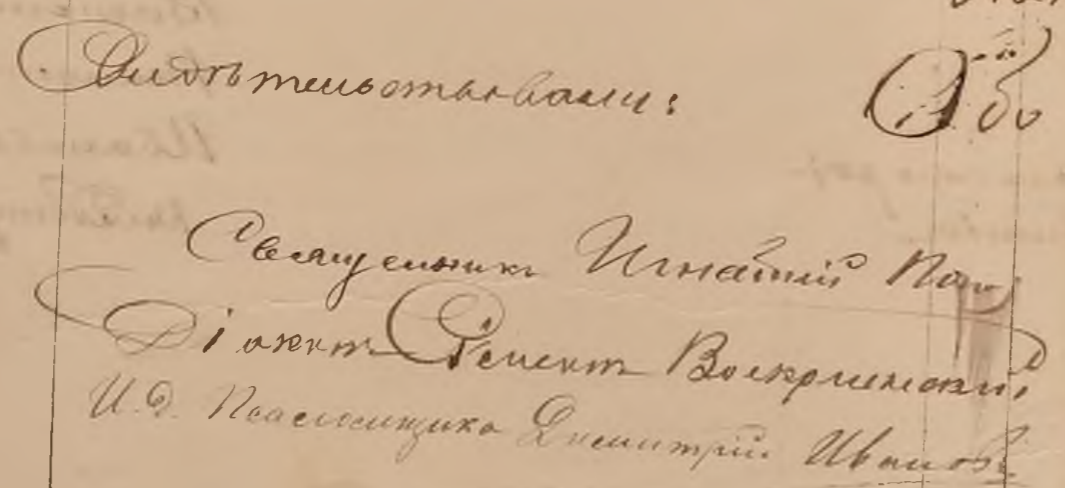 Свидѣтельствовали:
Священникъ Игнатій
Діаконъ Климентъ Воскресенскій
И. д. Псаломщика Димитрій Ивановъ